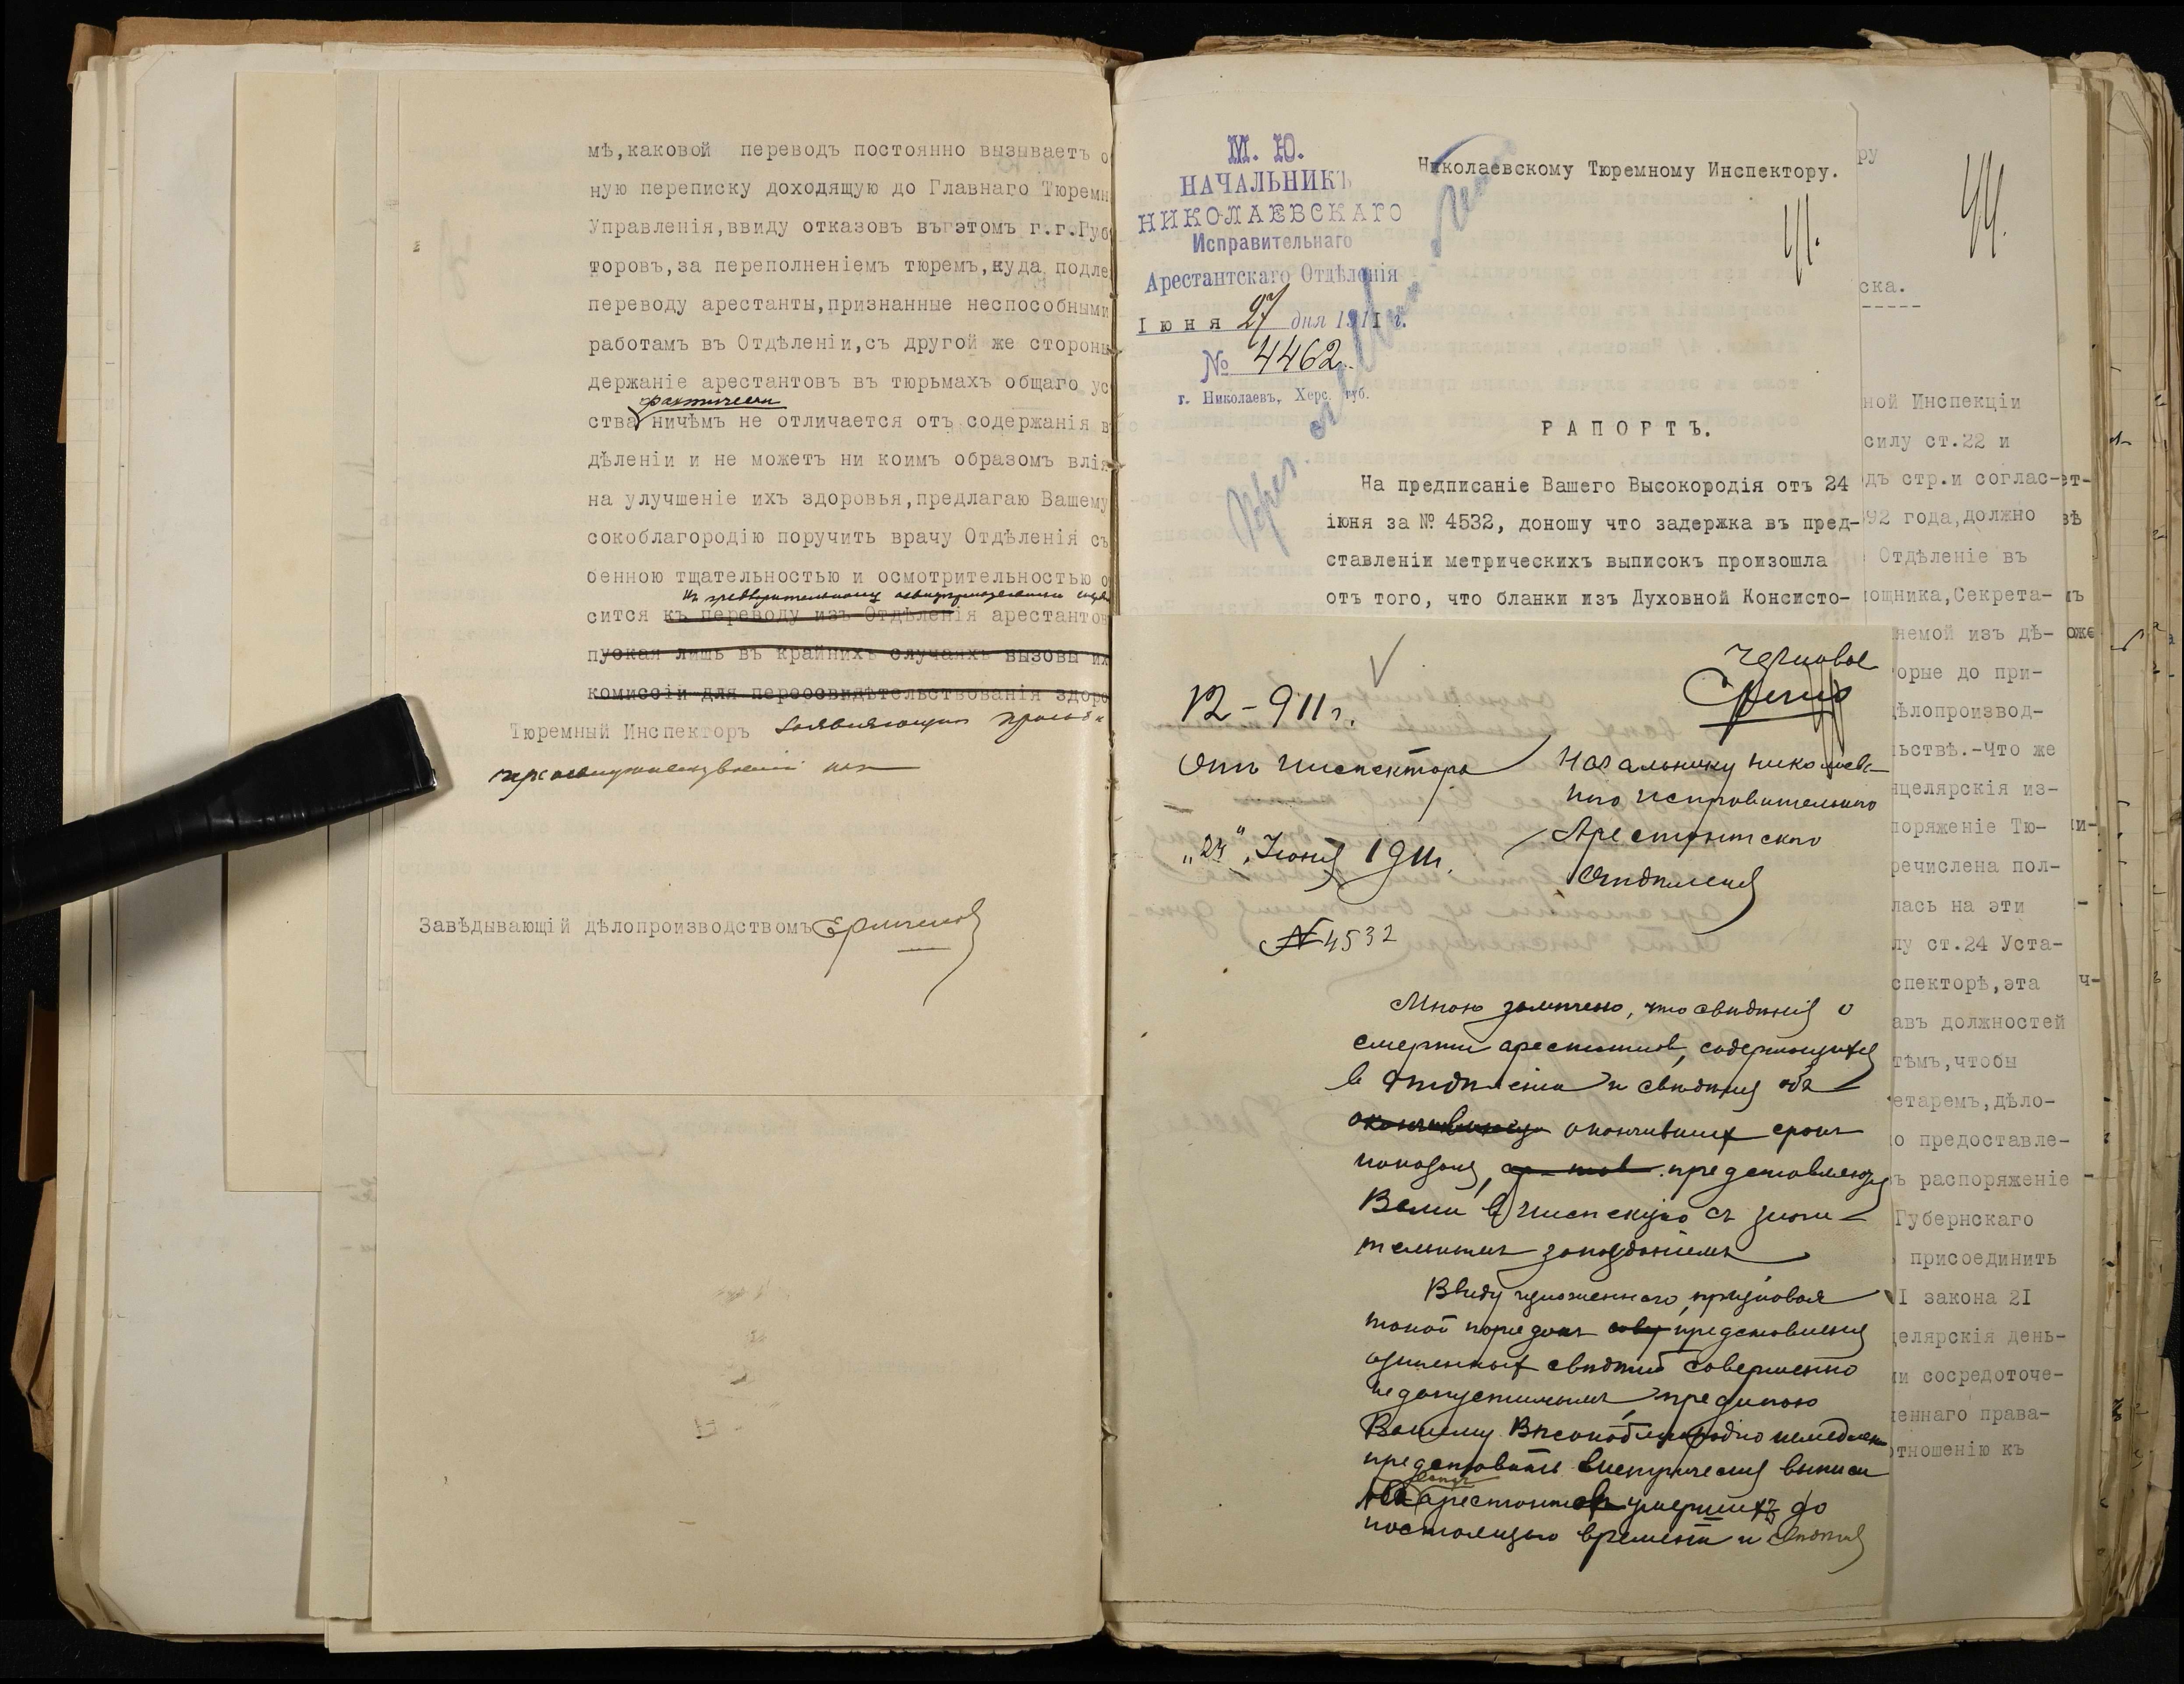 мѣ,каковой переводъ постоянно вызываетъ о
ную переписку доходящую до Главнаго Тюремн
Управленія,ввиду отказовъ въ этомъ г.г.Губ
торовъ,за переполненіемъ тюремъ,куда подле
переводу арестанты,признанные неспособными
работамъ въ Отдѣленіи,съ другой же стороны
держаніе арестантовъ въ тюрьмахъ общаго ус
фактически
ства ничѣмъ не отличается отъ содержанія в
дѣленіи и не можетъ ни коимъ образомъ влія
на улучшеніе ихъ здоровья,предлагаю Вашему
сокоблагородію поручить врачу Отдѣленія съ
бенною тщательностью и осмотрительностью о
къ предварительному освидѣтельствованію
сится къ переводу изъ Отдѣленія арестантов
пуская лишь въ крайнихъ случаяхъ вызовы их
комиссій для переосвидѣтельствованія здоро
Тюремный Инспекторъ заявляющихъ просьбы
Завѣдывающій дѣлопроизводствомъ
М. Ю.
НАЧАЛЬНИКЪ
НИКОЛАЕВСКАГО
Исправительнаго
Арестантскаго Отдѣленія
Іюня 27 дня 1911 г.
№ 4462
г. Николаевъ, Херс. губ.
Николаевскому Тюремному Инспектору.
41.
РАПОРТЪ.
На предписаніе Вашего Высокородія отъ 24
іюня за № 4532, доношу что задержка въ пред-
ставленіи метрическихъ выписокъ произошла
отъ того, что бланки изъ Духовной Консисто-
Черновое
Срочно
12-911 г.
Отъ Инспектора
"24" Іюня 1911 г.
№ 4532
Начальнику Николаевс-
каго Исправительнаго
Арестантскаго
Отдѣленія
Мною замѣчено, что свѣдѣнія о
смерти арестантовъ, содержащихся
въ Отдѣленіи и свѣдѣнія объ
окончившихъ срокъ
наказанія, представляются
Вами въ Инспекцію съ значи-
тельнымъ запозданіемъ
Ввиду изложеннаго, признавая
такой порядокъ представленія
означенныхъ свѣдѣній совершенно
недопустимымъ, предлагаю
Вашему Высокоблагородію немедленно
представить метрическія выписи
арестантовъ умершихъ до
настоящаго времени и свѣдѣнія
ру
44.
ска.
ной Инспекціи
силу ст.22 и
дъ стр.и соглас-
92 года,должно
Отдѣленіе въ
ощника,Секрета-
няемой изъ дѣ-
орые до при-
дѣлопроизвод-
льствѣ.-Что же
нцелярскія из-
поряженіе Тю-
речислена пол-
лась на эти
лу ст.24 Уста-
спекторѣ,эта
авъ должностей
тѣмъ,чтобы
етаремъ,дѣло-
о предоставле-
ъ распоряженіе
Губернскаго
присоединить
I закона 2I
целярскія день-
и сосредоточе-
ченнаго права-
отношенію къ